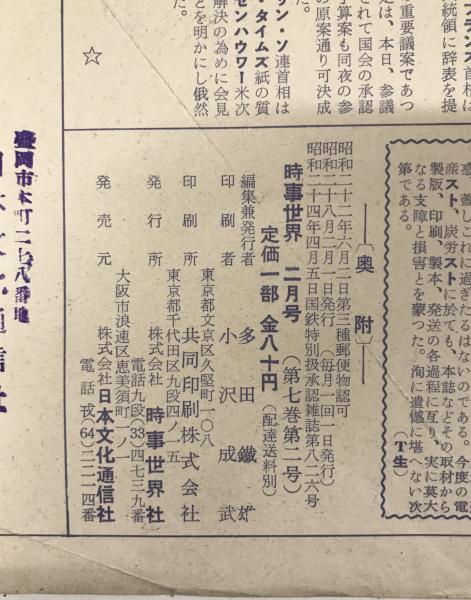 統領に辞表を提
重要議案であつ
定は、本日、参議
されて国会の承認
予算案も同夜の参
の原案通り可決成
た。
リン・ソ連首相は
・タイムズ紙の質
センハワー米次
解決の為めに会見
とを明かにし俄然
た。
☆
惑、蓋しこれに過ぎたるはないのである。今度の電
産スト、炭労ストに於ても、本誌などその取材から
製版、印刷、製本、発送の各過程に亙り、実に莫大
なる支障と損害とを蒙つた。洵に遺憾に堪へない次
第である。 (T生)
〔奥附〕
昭和二十二年六月二日第三種郵便物認可
昭和二十八月二月一日発行 (毎月一回一日発行)
昭和二十四年四月五日国鉄特別扱承認雑誌第八二六号
時事世界 二月号 (第七巻第二号)
定価一部 金八十円 (配達送料別)
編集兼発行者 多田鐵雄
印刷者 小沢成武
東京都文京区久堅町一〇八
印刷所 共同印刷株式会社
東京都千代田区九段四ノ一五
発行所 株式会社 時事世界社
電話九段(33)四七三九番
大阪市浪速区恵美須町一ノ一
発売元 株式会社 日本文化通信社
電話戎(64)二二一四番
盛岡市本町二七八番地
通信社